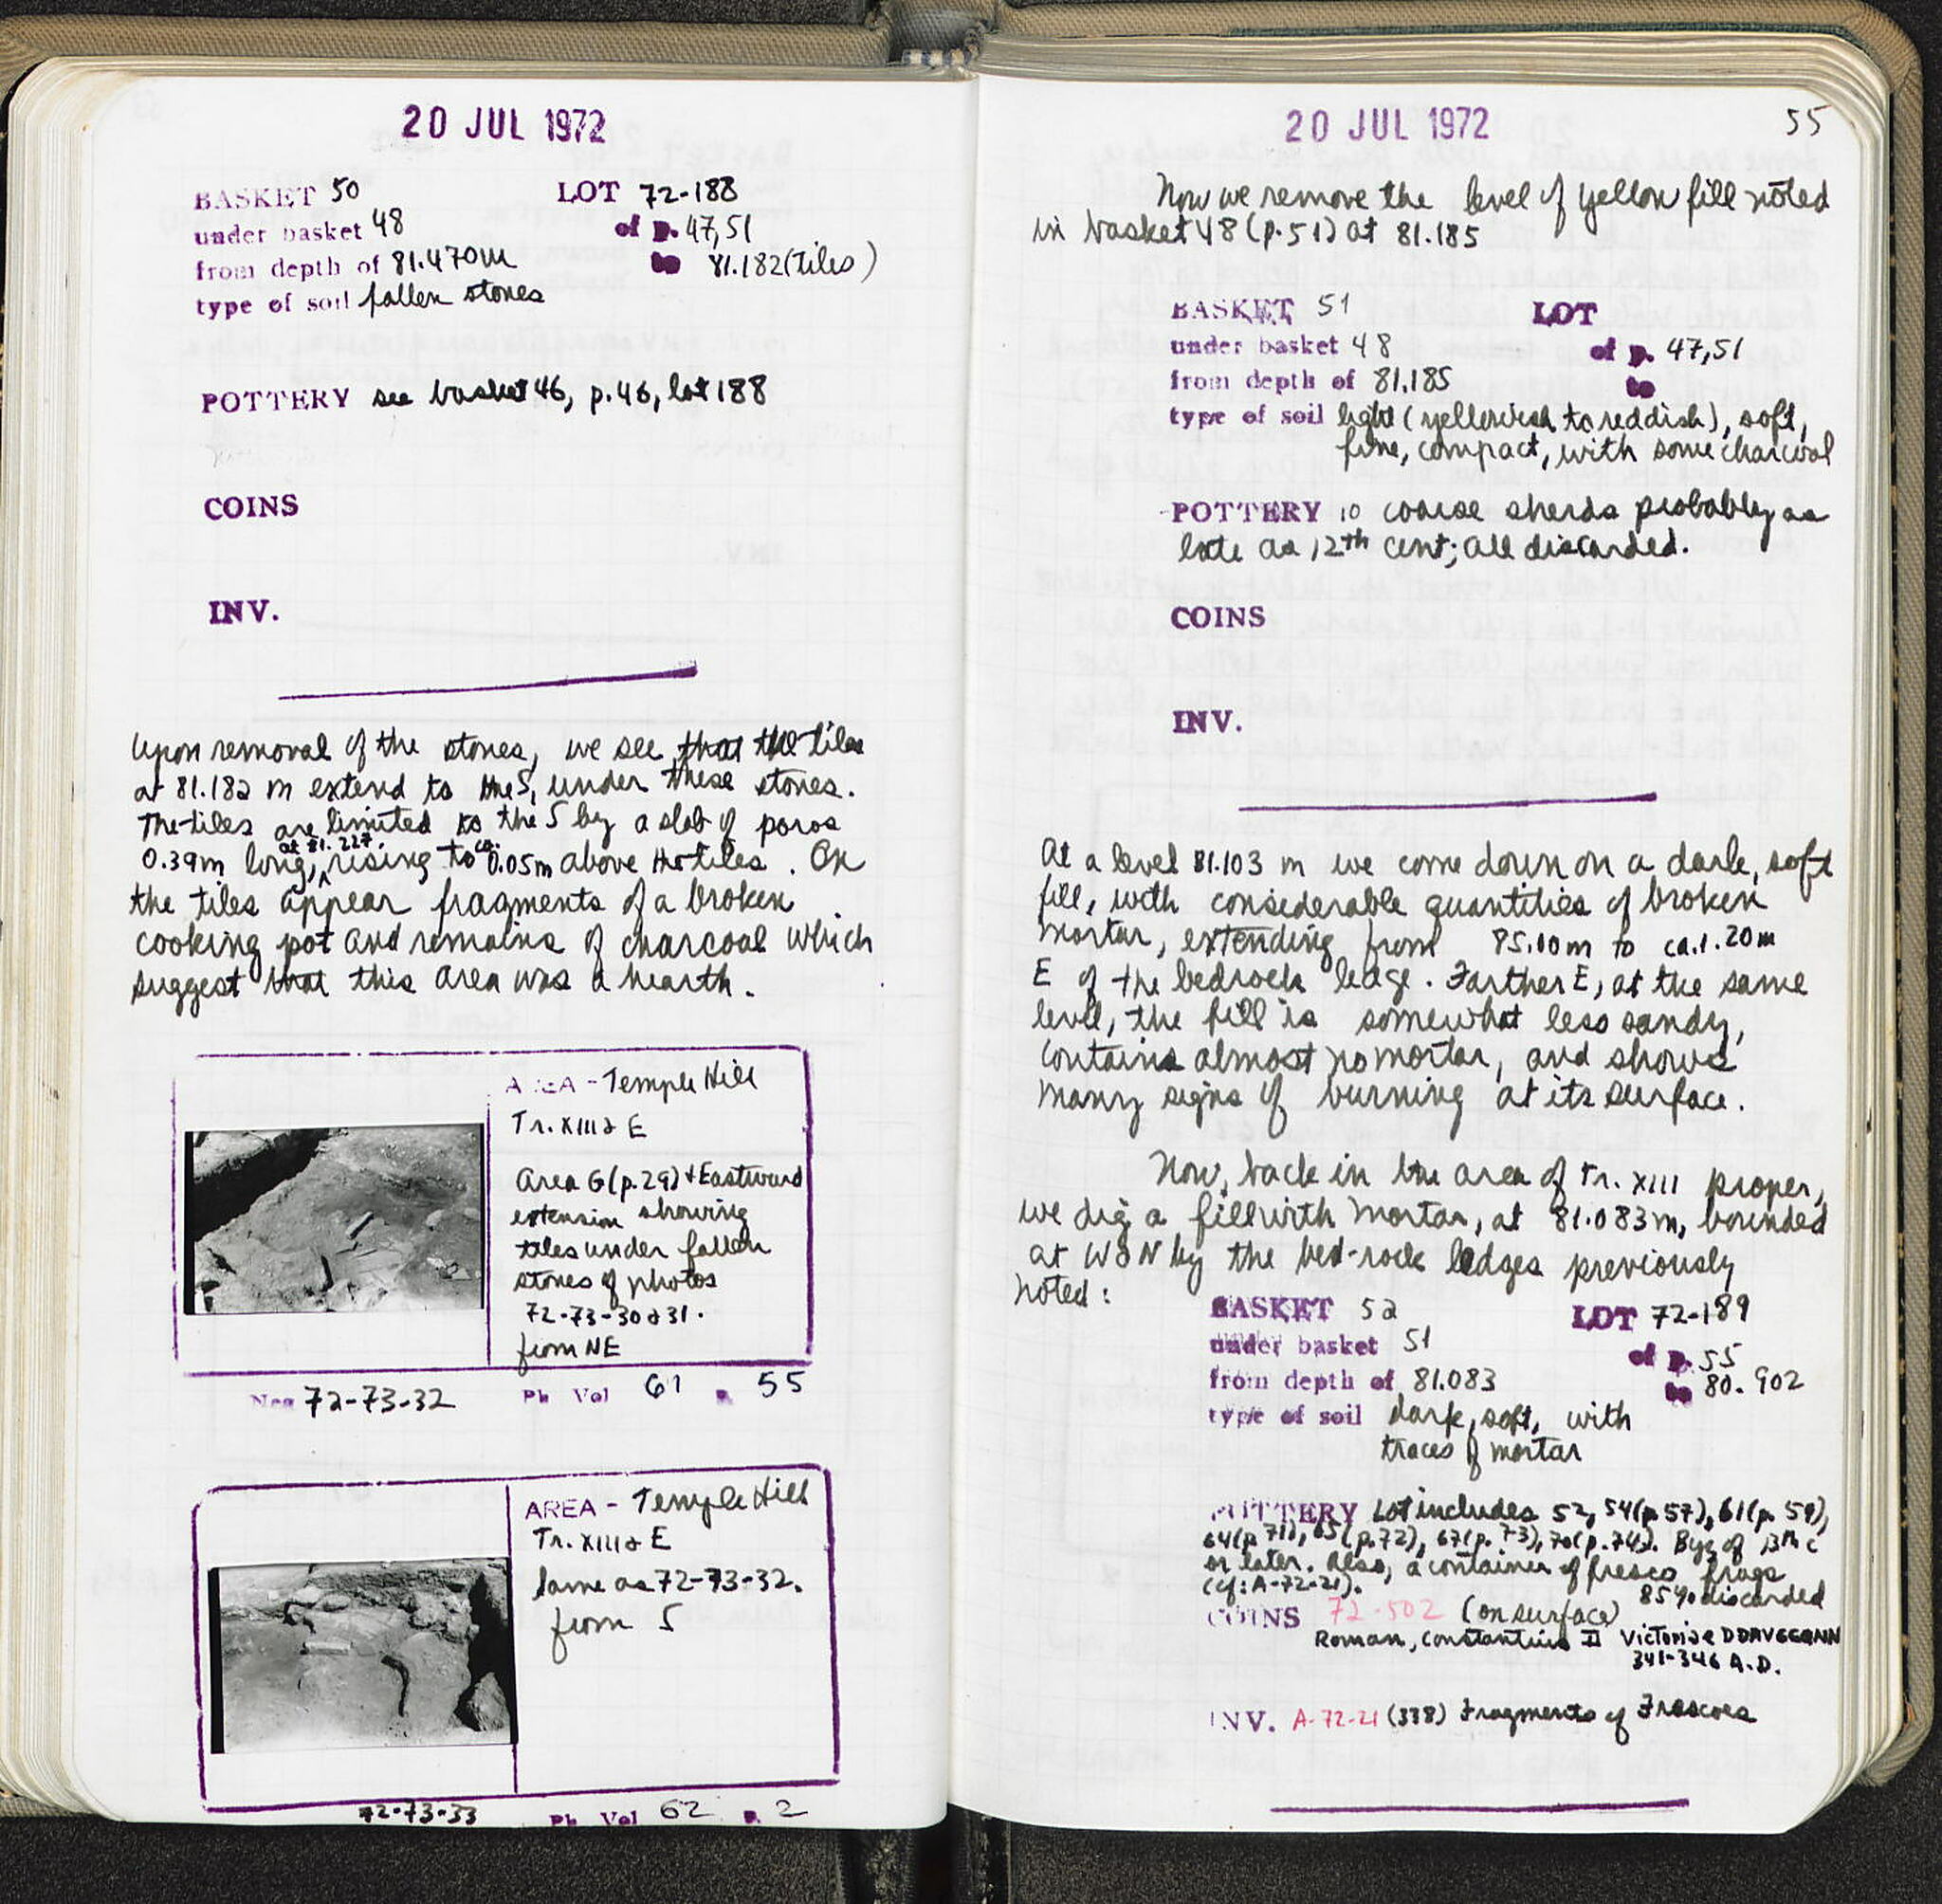 20 JUL 1972
BASKET 50 LOT 72-188
under basket 48 of p. 47,51
from depth of 81.470m to 81.182 (tiles)
type of soil fallen stones
POTTERY see basket 46, p. 46, lot 188
COINS
INV.
Upon removal of the stones, we see that the tiles
at 81.182 m extend to the S, under these stones.
The tiles are limited to the S by a slab of poros
0.39m long, at 81.227, rising to ca. 0.05m above the tiles. On
the tiles appear fragments of a broken
cooking pot and remains of charcoal which
suggest that this area was a hearth.
AREA - Temple Hill
Tr. XIII & E
Area G (p.29) + Eastward
extension showing
tiles under fallen
stones of photos
72-73-30 & 31.
from NE
Neg 72-73-32 Ph Vol 61 p. 55
AREA - Temple Hill
Tr. XIII & E
Same as 72-73-32.
from S
72-73-33 Ph Vol 62 p. 2
20 JUL 1972 55
Now we remove the level of yellow fill noted
in basket 48 (p.51) at 81.185
BASKET 51 LOT
under basket 48 of p. 47,51
from depth of 81.185 to
type of soil light (yellowish to reddish), soft,
fine, compact, with some charcoal
POTTERY 10 coarse sherds probably as
late as 12th cent; all discarded.
COINS
INV.
At a level 81.103 m we come down on a dark, soft
fill, with considerable quantities of broken
mortar, extending from 85.10m to ca. 1.20m
E of the bedrock ledge. Farther E, at the same
level, the fill is somewhat less sandy,
contains almost no mortar, and shows
many signs of burning at its surface.
Now, back in the area of Tr. XIII proper,
we dig a fill with mortar, at 81.083m, bounded
at W & N by the bed-rock ledges previously
noted:
BASKET 52 LOT 72-189
under basket 51 of p. 55
from depth of 81.083 to 80.902
type of soil dark, soft, with
traces of mortar
POTTERY Lot includes 52, 54 (p.57), 61 (p. 59),
64 (p 71), 65 (p.72), 67 (p. 73), 70 (p.74). Byz of 13th c
or later. Also, a container of fresco frags
(cf: A-72-21). 85% discarded
COINS 72-502 (on surface)
Roman, Constantius II Victoriae DDAVGGQNN
341-346 A.D.
INV. A-72-21 (338) Fragments of Frescoes